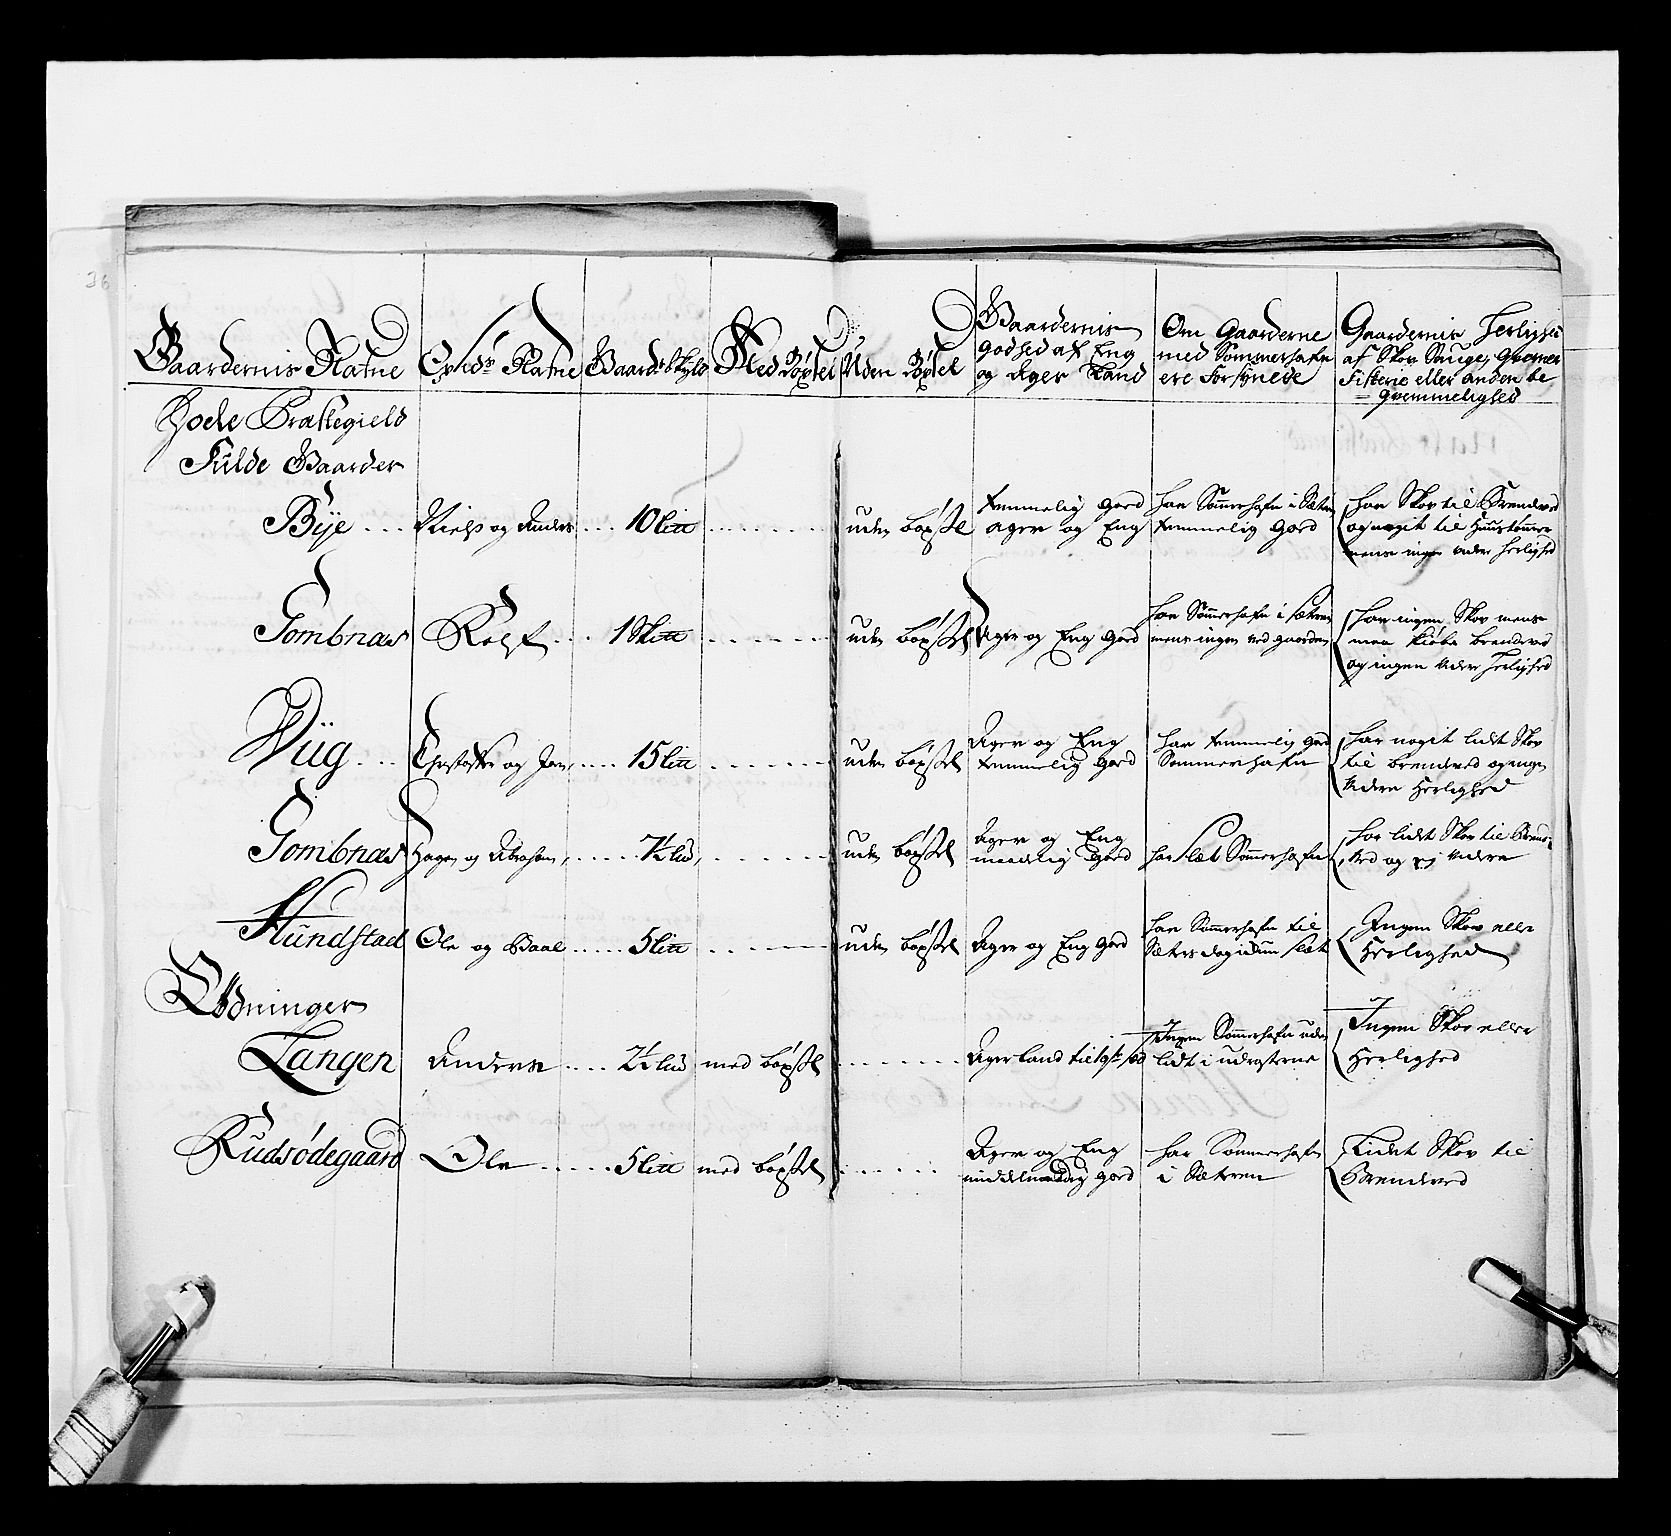 36
Gaardernis Nafne
Opsids Nafne
Gaards Skyld
Med Böxsel
Uden Böxsel
Gaardernis
Godhed af Eng
og Ager Land
Om Gaarderne
med Sommerhafn
ere Forsynede
Gaardernis Herlighed
af Skov Sauge, Qverner
Fiskerie eller anden be
= qvemmelighed
Hoele Præstegield
Fulde Gaarder
Bÿe ....
Niels og Anders
10 litt
uden böxsel
temmelig goed
ager og Eng
har Sommerhafn i Sætren
temmelig goed
har Skov til Brendeved
og nogit til Huustömmer
mens ingen videre herlighed
Gombnæs
Rolf
1 Skitt
uden böxsel
Ager og Eng goed
har Sommerhafn i Sætren
mens ingen ved gaarden
har ingen Skov mens
maa kiöbe brendeved
og ingen videre Herlighed
Viig ...
Christoffer og Jan,
15 litt
uden böxsel
Ager og Eng
temmelig goed
har temmelig god
Sommerhafn
har nogit lidt Skov
til brendeved og ingen
videre Herlighed
Gombnæs
Hagen og Abraham,
7½ lis,
uden böxsel
Ager og Eng
maadelig goed
har slet Sommerhafn
har lidt Skov til Brende
ved og ej videre
Hundstad
Ole og Paal
5 litt
uden böxsel
Ager og Eng goed
har Sommerhafn til
Sæters dog iblant slet
Ingen Skov eller
Herlighed
Ödninger
Langen
Anders
2½ lis
med böxsel
Ager Land til
Ingen Sommerhafn uden
lidt i udrasterne
Ingen Skov eller
Herlighed
Rudsödegaard
Ole
5 litt
med böxsel
Ager og Eng
middelmaadig goed
har Sommerhafn
i Sætren
Lidet Skov til
Brendeved